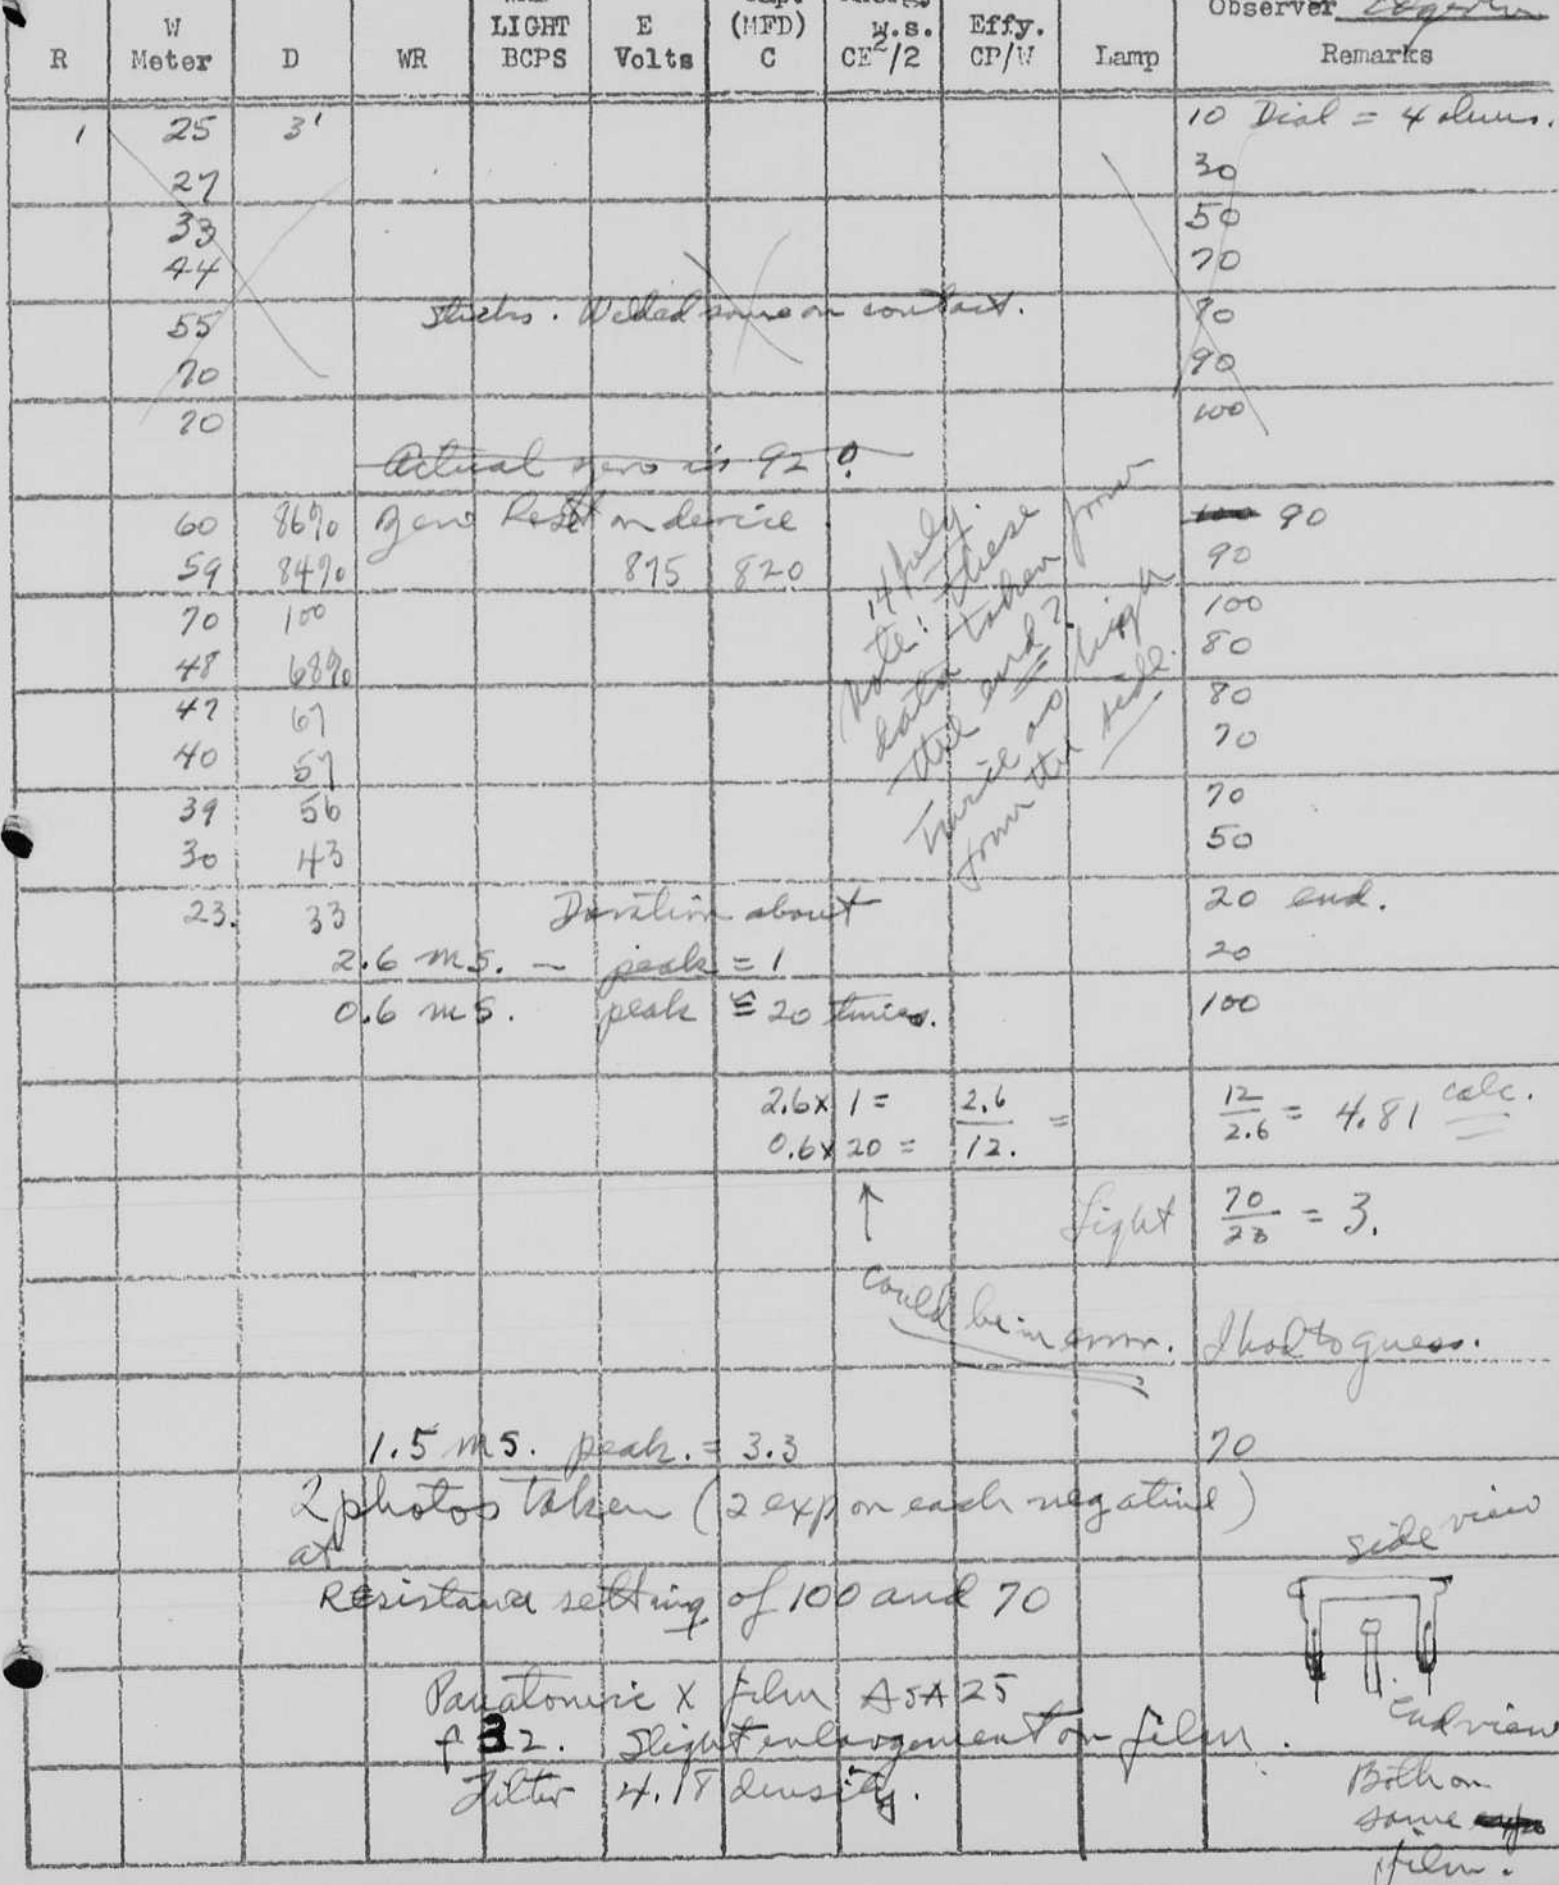 Observer
W LIGHT E (MFD) w.s. Effy.
R Meter D WR BCPS Volts C CE²/2 CP/W Lamp Remarks
1 25 3' 10 Dial = 4 ohms.
27 30
33 50
44 70
55 Sticks. Welded some on contact. 80
70 90
70 100
Actual zero is 92 !
60 86% Zero Reset on device 100 90
59 84% 875 820 90
70 100 100
48 68% 80
47 67 80
40 57 70
39 56 70
30 43 50
23. 33 Duration about 20 end.
2.6 ms. — peak = 1 20
0.6 ms. peak ≅ 20 times. 100
14 July.
Note! These
data taken from
the end?
Twice as high
from the side.
2.6 x 1 = 2.6 = 12/2.6 = 4.81 calc.
0.6 x 20 = 12.
↑ Light 70/23 = 3.
Could be in error. I had to guess.
1.5 ms. peak. = 3.3 70
2 photos taken (2 exp on each negative)
at
Resistance setting of 100 and 70
side view
Panatomic X film ASA 25
f 32. Slight enlargement on film.
Filter 4.18 density.
End view
Both on
same
film.